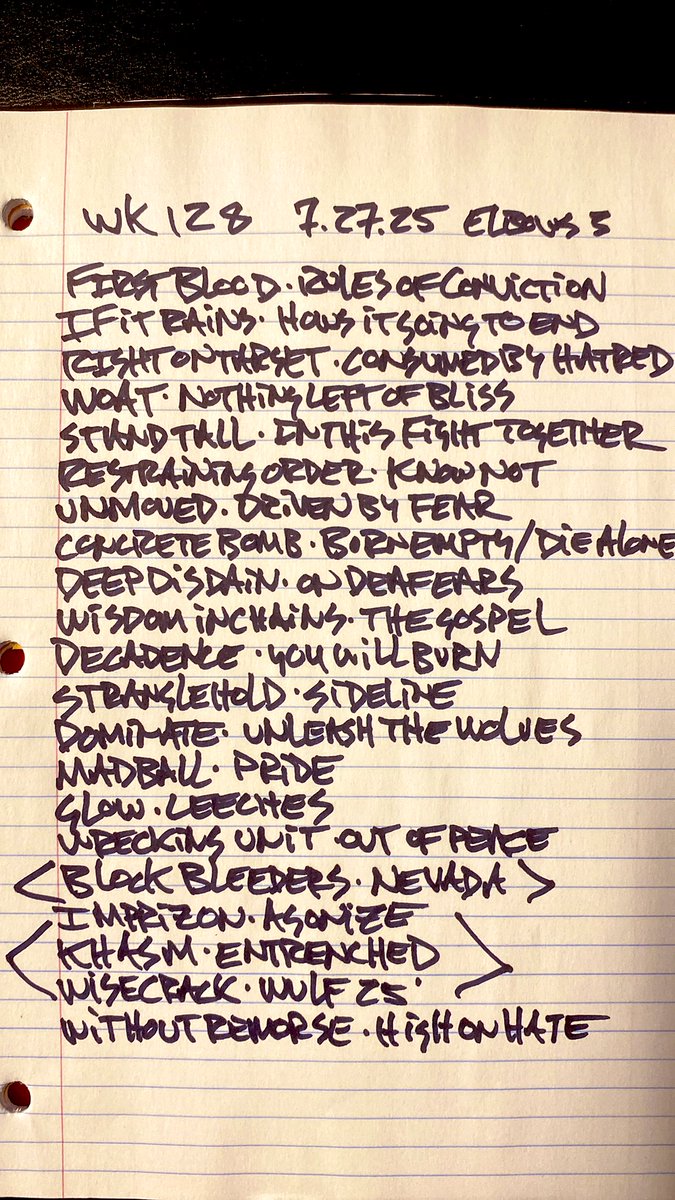 WK 128 7.27.25 ELBOWS 5
FIRST BLOOD · RULES OF CONVICTION
IF IT RAINS · HOWS IT GOING TO END
RIGHT ON TARGET · CONSUMED BY HATRED
WOAT · NOTHING LEFT OF BLISS
STAND TALL · IN THIS FIGHT TOGETHER
RESTRAINING ORDER · KNOW NOT
UNMOVED · DRIVEN BY FEAR
CONCRETE BOMB · BORN EMPTY/DIE ALONE
DEEP DISDAIN · ON DEAF EARS
WISDOM IN CHAINS · THE GOSPEL
DECADENCE · YOU WILL BURN
STRANGLEHOLD · SIDELINE
DOMINATE · UNLEASH THE WOLVES
MADBALL · PRIDE
GLOW · LEECHES
WRECKING UNIT · OUT OF PEACE
< BLOCK BLEEDERS · NEVADA >
IMPRIZON · AGONIZE
KHASM · ENTRENCHED
WISECRACK · WULF 25'
WITHOUT REMORSE · HIGH ON HATE